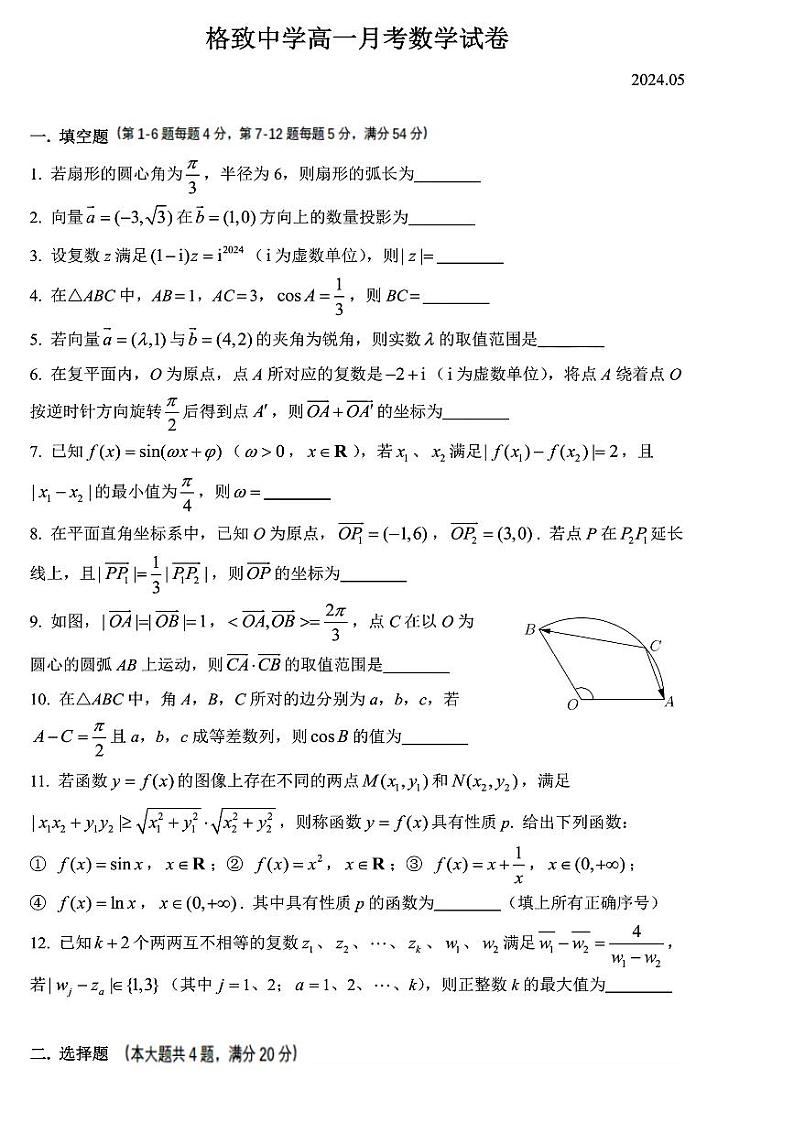 格致中学高一月考数学试卷
2024.05
一. 填空题 (第 1-6 题每题 4 分，第 7-12 题每题 5 分，满分 54 分)
1. 若扇形的圆心角为 π/3，半径为 6，则扇形的弧长为________
2. 向量 a⃗ = (−3, √3) 在 b⃗ = (1,0) 方向上的数量投影为________
3. 设复数 z 满足 (1−i)z = i²⁰²⁴（i 为虚数单位），则 | z |= ________
4. 在△ABC 中，AB = 1，AC = 3，cos A = 1/3，则 BC = ________
5. 若向量 a⃗ = (λ,1) 与 b⃗ = (4,2) 的夹角为锐角，则实数 λ 的取值范围是________
6. 在复平面内，O 为原点，点 A 所对应的复数是 −2 + i（i 为虚数单位），将点 A 绕着点 O
按逆时针方向旋转 π/2 后得到点 A′，则 OA⃗ + OA′⃗ 的坐标为________
7. 已知 f(x) = sin(ωx + φ)（ω > 0，x ∈ R），若 x₁、x₂ 满足 | f(x₁) − f(x₂) |= 2，且
| x₁ − x₂ | 的最小值为 π/4，则 ω = ________
8. 在平面直角坐标系中，已知 O 为原点，OP₁⃗ = (−1,6)，OP₂⃗ = (3,0). 若点 P 在 P₂P₁ 延长
线上，且 | PP₁⃗ |= 1/3 | P₁P₂⃗ |，则 OP⃗ 的坐标为________
9. 如图，| OA⃗ |=| OB⃗ |= 1，< OA⃗, OB⃗ >= 2π/3，点 C 在以 O 为
圆心的圆弧 AB 上运动，则 CA⃗ · CB⃗ 的取值范围是________
B
C
O
A
10. 在△ABC 中，角 A，B，C 所对的边分别为 a，b，c，若
A − C = π/2 且 a，b，c 成等差数列，则 cos B 的值为________
11. 若函数 y = f(x) 的图像上存在不同的两点 M(x₁, y₁) 和 N(x₂, y₂)，满足
| x₁x₂ + y₁y₂ |≥ √(x₁² + y₁²) · √(x₂² + y₂²)，则称函数 y = f(x) 具有性质 p. 给出下列函数:
① f(x) = sin x，x ∈ R；② f(x) = x²，x ∈ R；③ f(x) = x + 1/x，x ∈ (0,+∞)；
④ f(x) = ln x，x ∈ (0,+∞). 其中具有性质 p 的函数为________（填上所有正确序号）
12. 已知 k + 2 个两两互不相等的复数 z₁、z₂、⋯、z_k、w₁、w₂ 满足 w̅₁ − w̅₂ = 4/(w₁ − w₂)，
若 | w_j − z_a |∈ {1,3}（其中 j = 1、2；a = 1、2、⋯、k），则正整数 k 的最大值为________
二. 选择题 (本大题共 4 题，满分 20 分)